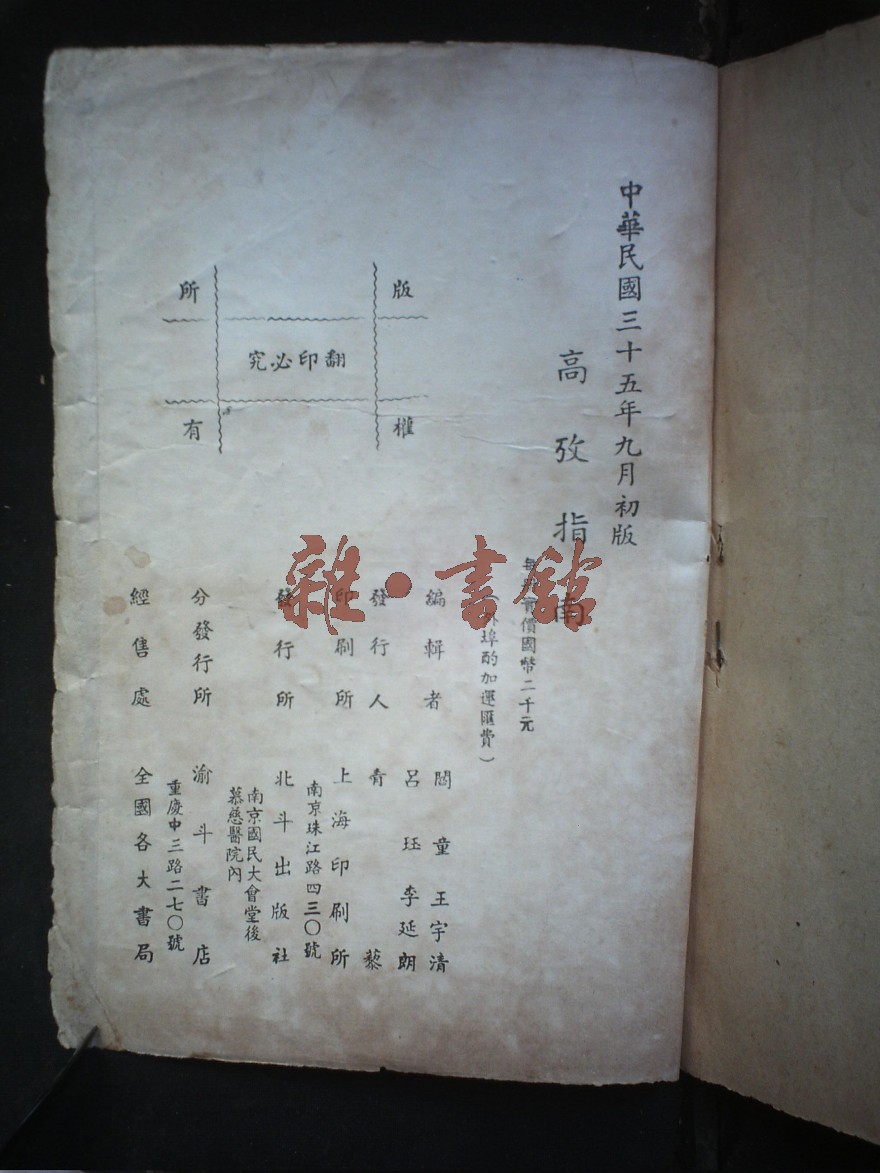 中華民國三十五年九月初版
高攷指南
每冊實價國幣二千元
外埠酌加運匯費）
編輯者 閻童 王宇清
呂珏 李延朗
發行人 青藜
印刷所 上海印刷所
南京珠江路四三〇號
發行所 北斗出版社
南京國民大會堂後
慕慈醫院內
分發行所 渝斗書店
重慶中三路二七〇號
經售處 全國各大書局
版權所有
翻印必究
雜·書館